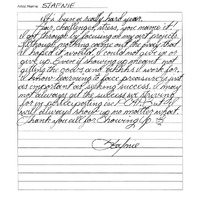 Artist Name: STAFNIE
it's been a really hard year.
For challenges, stress, you name it! I
got through by focusing on my art projects.
Although nothing came out the way that
I hoped it would, I could not give up or
give up. Even if showing up meant not
getting the goods and others it work for.
learning to face pressure is just
as important as seeking success. I may
not always get the success we striving
for in participating in
will always show up no matter what.
Thank you all for showing up
Stafnie